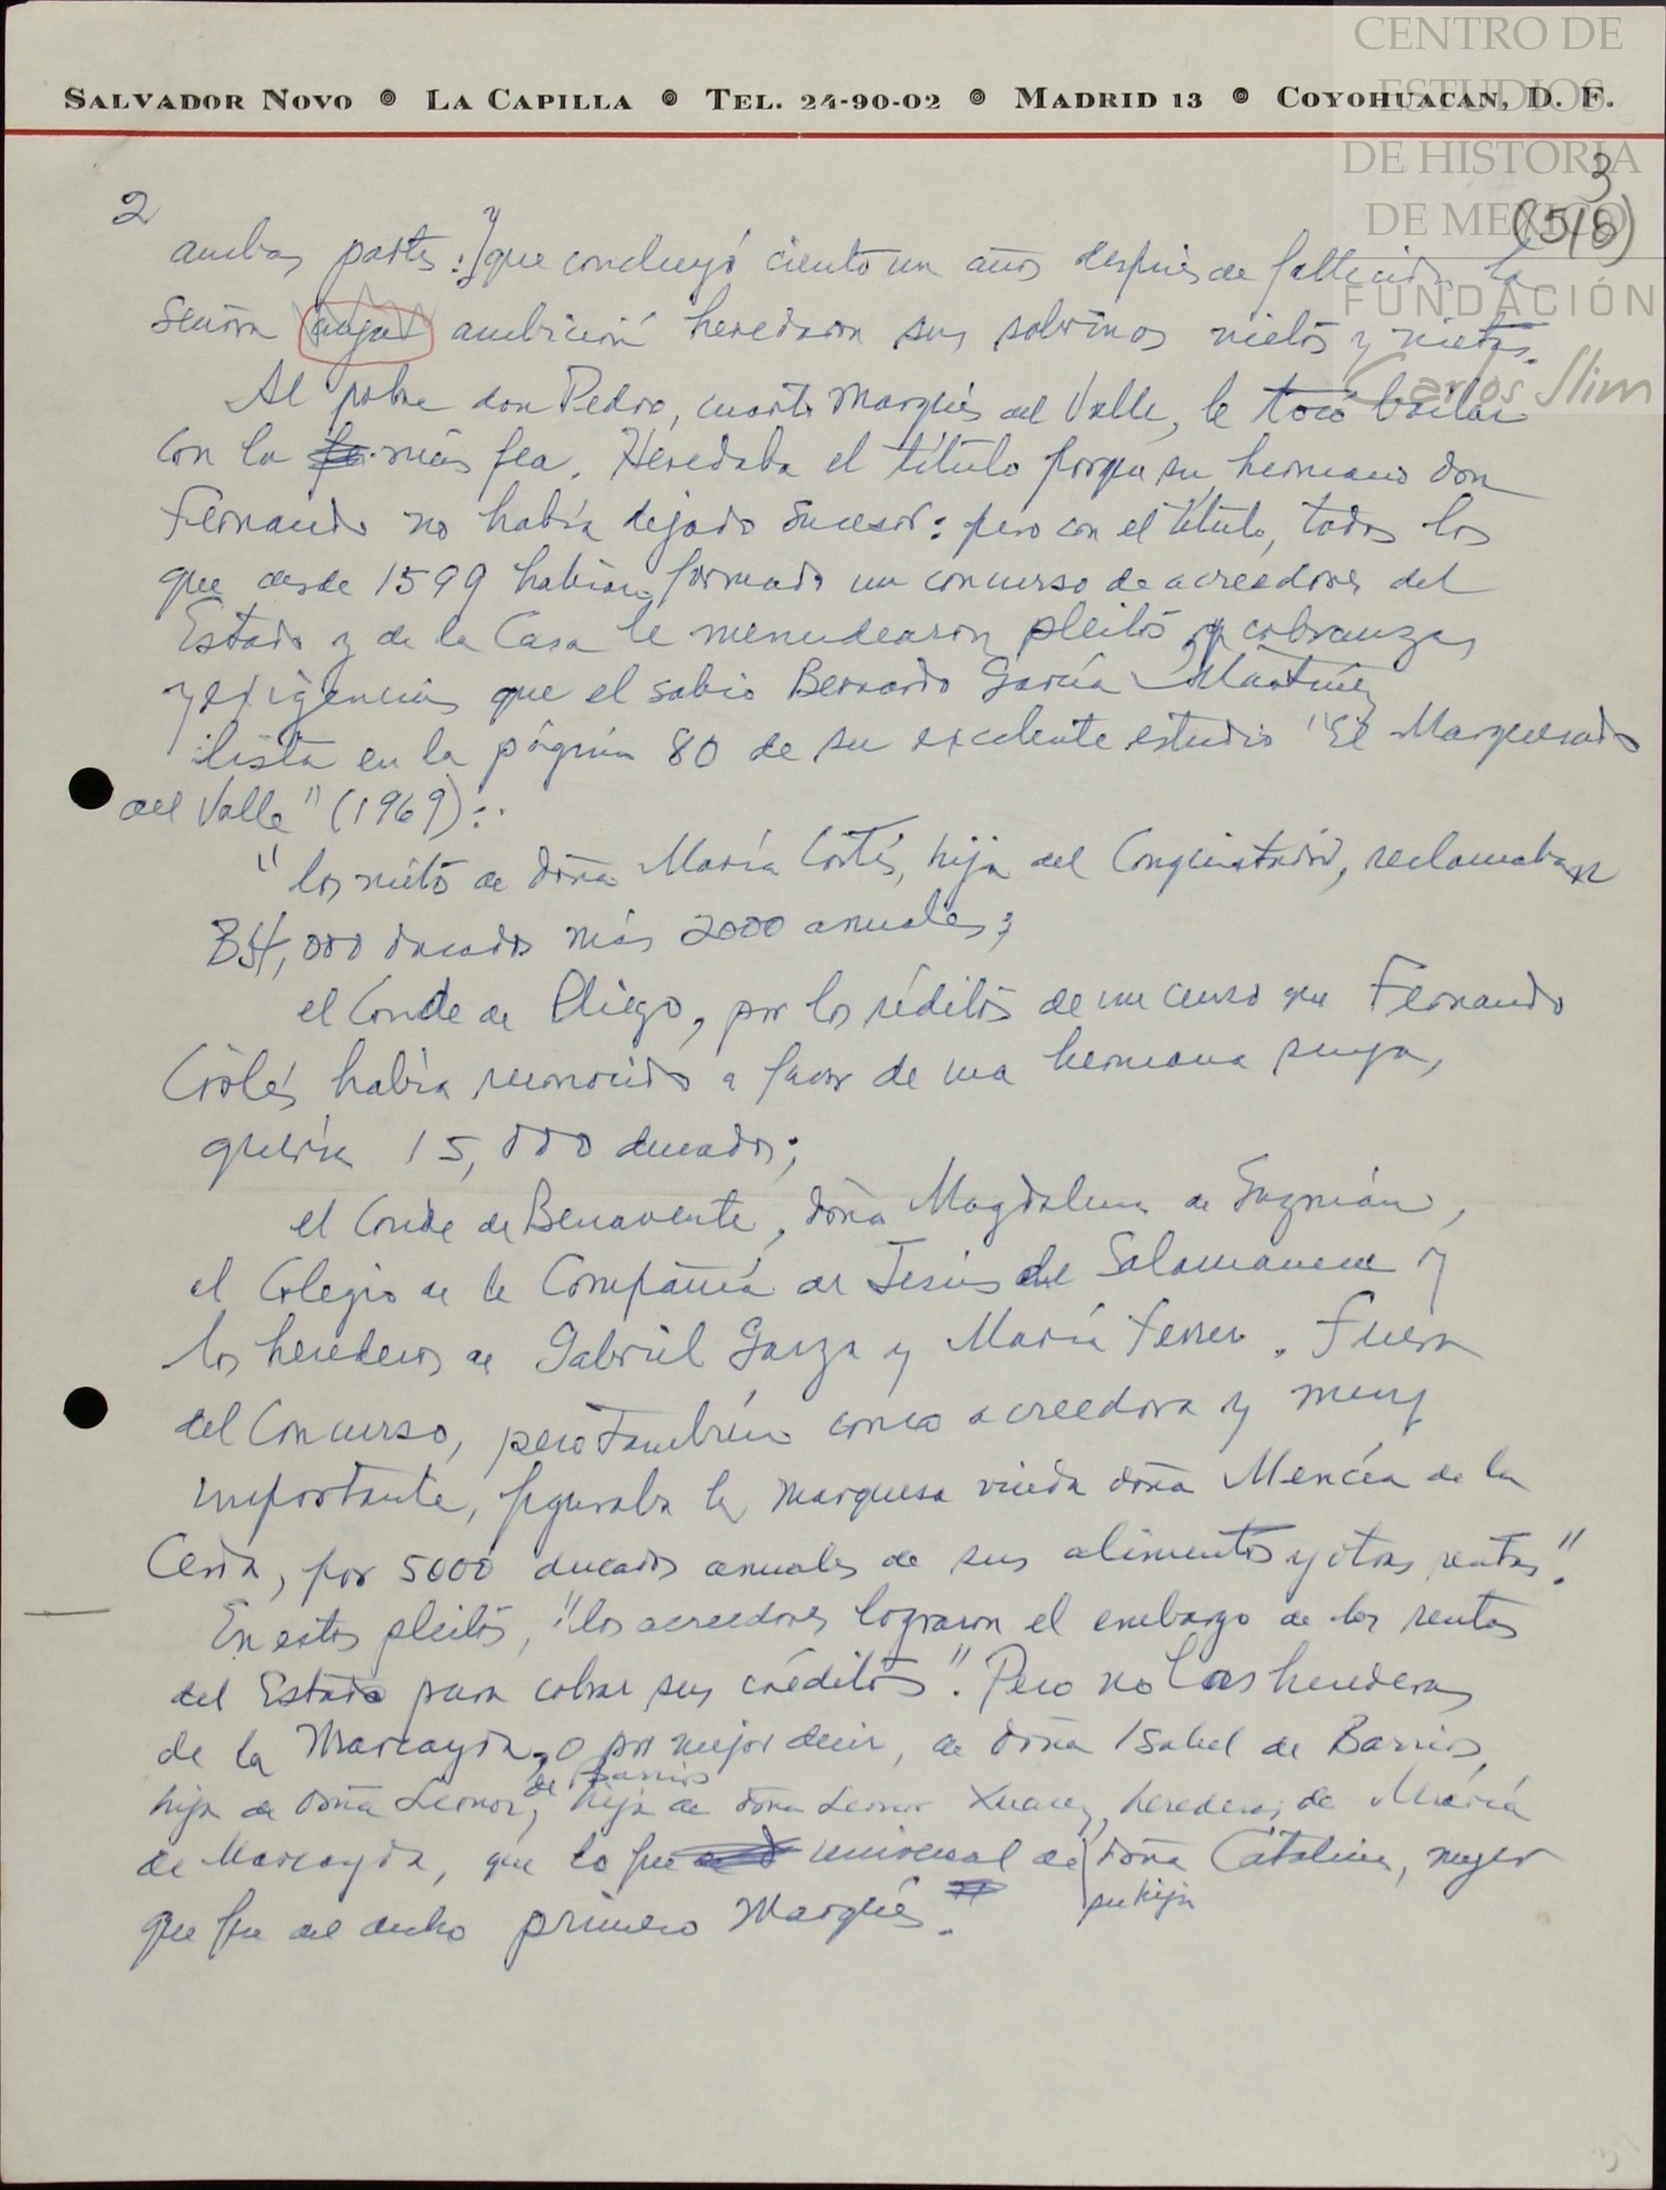 CENTRO DE
ESTUDIOS
DE HISTORIA
DE MEXICO
FUNDACIÓN
Carlos Slim
SALVADOR NOVO LA CAPILLA TEL. 24-90-02 MADRID 13 COYOHUACAN, D. F.
3
2
ambas partes: y que concluyó ciento un años después de fallecida la
Señora cuya ambición heredaron sus sobrinos nietos y nietas.
Al pobre don Pedro, cuarto Marqués del Valle, le tocó bailar
con la más fea. Heredaba el título porque su hermano don
Fernando no había dejado sucesor: pero con el título, todos los
que desde 1599 habían formado un concurso de acreedores del
Estado y de la Casa le menudearon pleitos y cobranzas
y exigencias que el sabio Bernardo García Martínez
lista en la página 80 de su excelente estudio "El Marquesado
del Valle" (1969):
"los nietos de doña María Cortés, hija del Conquistador, reclamaban
34,000 ducados más 2000 anuales;
el Conde de Pliego, por los réditos de un censo que Fernando
Cortés había reconocido a favor de una hermana suya,
quería 15,000 ducados;
el Conde de Benavente, doña Magdalena de Guzmán,
el Colegio de la Compañía de Jesús de Salamanca y
los herederos de Gabriel Garza y María Ferrer. Fuera
del Concurso, pero también como acreedora y muy
importante, figuraba la marquesa viuda doña Mencía de la
Cerda, por 5000 ducados anuales de sus alimentos y otras rentas".
En estos pleitos, "los acreedores lograron el embargo de las rentas
del Estado para cobrar sus créditos". Pero no las herederas
de la Marcayda, o por mejor decir, de doña Isabel de Barrios,
de Barrios
hija de doña Leonor, hija de doña Leonor Xuarez, heredera de María
de Marcayda, que lo fue universal de doña Catalina, mujer
su hija
que fue del dicho primero Marqués.